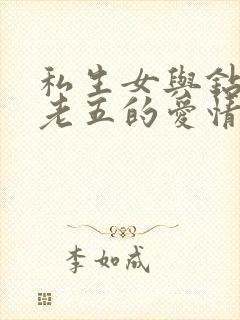 私生女與鉆
老五的愛情
李如成